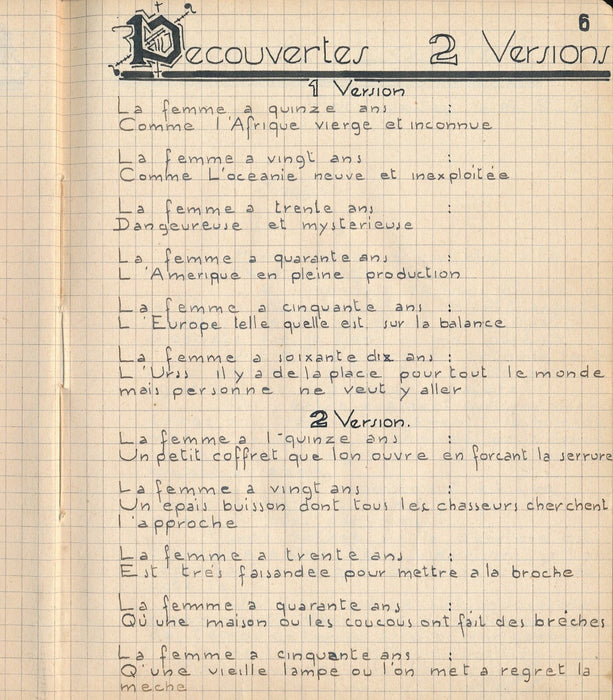 6
Decouvertes 2 Versions
1 Version
La femme a quinze ans :
Comme l'Afrique vierge et inconnue
La femme a vingt ans :
Comme L'oceanie neuve et inexploitée
La femme a trente ans :
Dangeureuse et mysterieuse
La femme a quarante ans :
L'Amerique en pleine production
La femme a cinquante ans :
L'Europe telle quelle est sur la balance
La femme a soixante dix ans :
L'Urss il y a de la place pour tout le monde
mais personne ne veut y aller
2 Version.
La femme a l'quinze ans :
Un petit coffret que lon ouvre en forcant la serrure
La femme a vingt ans :
Un epais buisson dont tous les chasseurs cherchent
l'approche
La femme a trente ans :
Est trés faisandee pour mettre a la broche
La femme a quarante ans :
Qu'une maison ou les coucous ont fait des brêches
La femme a cinquante ans :
Q'une vieille lampe ou l'on met a regret la
meche